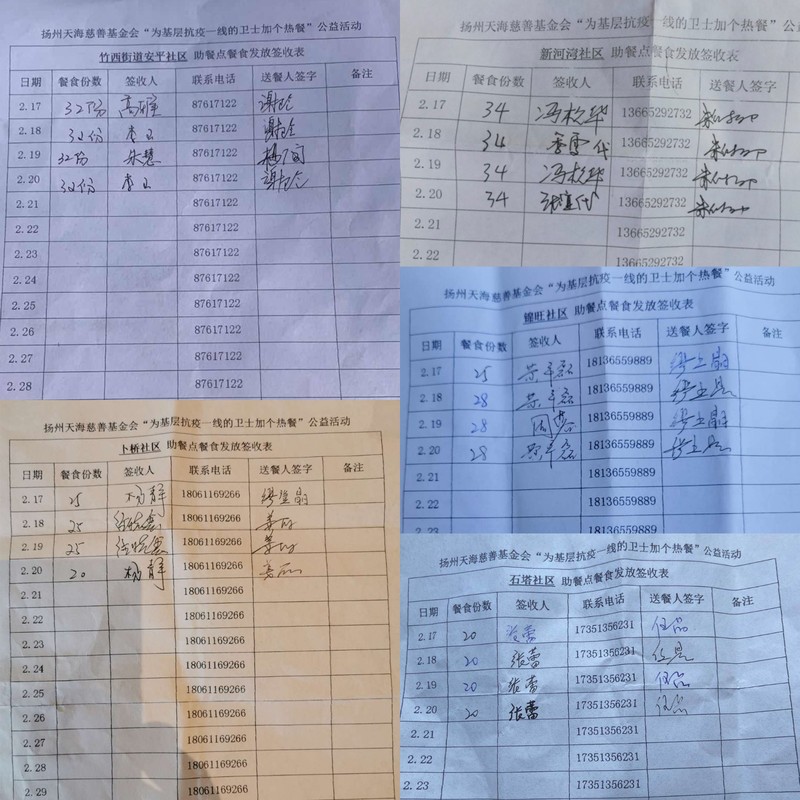 扬州天海慈善基金会“为基层抗疫一线的卫士加个热餐”公益活动
竹西街道安平社区 助餐点餐食发放签收表
日期 餐食份数 签收人 联系电话 送餐人签字 备注
2.17 32份 高雅 87617122
2.18 32份 李玉 87617122
2.19 32份 朱慧 87617122
2.20 32份 李玉 87617122
2.21 87617122
2.22 87617122
2.23 87617122
2.24 87617122
2.25 87617122
2.26 87617122
2.27 87617122
2.28 87617122
扬州天海慈善基金会“为基层抗疫一线的卫士加个热餐”公益活动
新河湾社区 助餐点餐食发放签收表
日期 餐食份数 签收人 联系电话 送餐人签字 备注
2.17 34 13665292732
2.18 34 13665292732
2.19 34 13665292732
2.20 34 13665292732
2.21 13665292732
2.22 13665292732
扬州天海慈善基金会“为基层抗疫一线的卫士加个热餐”公益活动
锦旺社区 助餐点餐食发放签收表
日期 餐食份数 签收人 联系电话 送餐人签字 备注
2.17 25 18136559889
2.18 28 18136559889
2.19 28 18136559889
2.20 28 18136559889
2.21 18136559889
2.22 18136559889
2.23 18136559889
扬州天海慈善基金会“为基层抗疫一线的卫士加个热餐”公益活动
卜桥社区 助餐点餐食发放签收表
日期 餐食份数 签收人 联系电话 送餐人签字 备注
2.17 25 杨静 18061169266
2.18 25 18061169266
2.19 25 18061169266
2.20 20 杨静 18061169266
2.21 18061169266
2.22 18061169266
2.23 18061169266
2.24 18061169266
2.25 18061169266
2.26 18061169266
2.27 18061169266
2.28 18061169266
2.29 18061169266
扬州天海慈善基金会“为基层抗疫一线的卫士加个热餐”公益活动
石塔社区 助餐点餐食发放签收表
日期 餐食份数 签收人 联系电话 送餐人签字 备注
2.17 20 张蕾 17351356231
2.18 20 张蕾 17351356231
2.19 20 张蕾 17351356231
2.20 20 张蕾 17351356231
2.21 17351356231
2.22 17351356231
2.23 17351356231